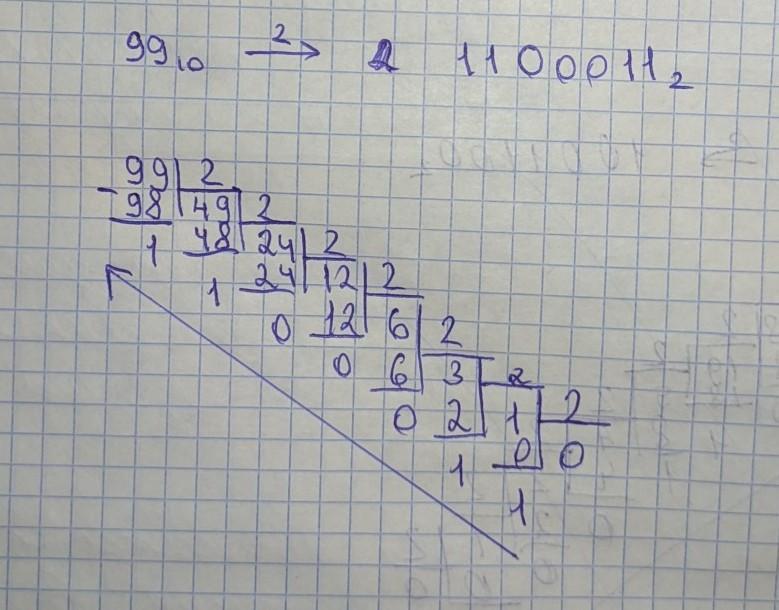 99₁₀ →² 1100011₂
99 2
-98 49 2
1 48 24 2
1 24 12 2
0 12 6 2
0 6 3 2
0 2 1 2
1 0 0
1